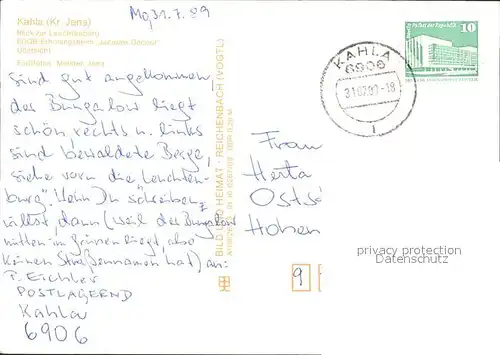 Mo, 31.7.89
Kahla (Kr. Jena)
Blick zur Leuchtenburg
sind gut angekommen,
der Bungalow liegt
schön rechts u. links
sind bewaldete Berge,
siehe vorn die Leuchten-
burg". Wenn Du schreiben
willst, dann (weil der Bungalow
mitten im Grünen liegt, also
keinen Straßennamen hat) an:
P. Eichler
POSTLAGERND
Kahla
6906
BILD UND HEIMAT · REICHENBACH (VOGTL)
KAHLA
6906
31.07.89-18
10
Frau
Herta
Hohen
privacy protection
Datenschutz
9